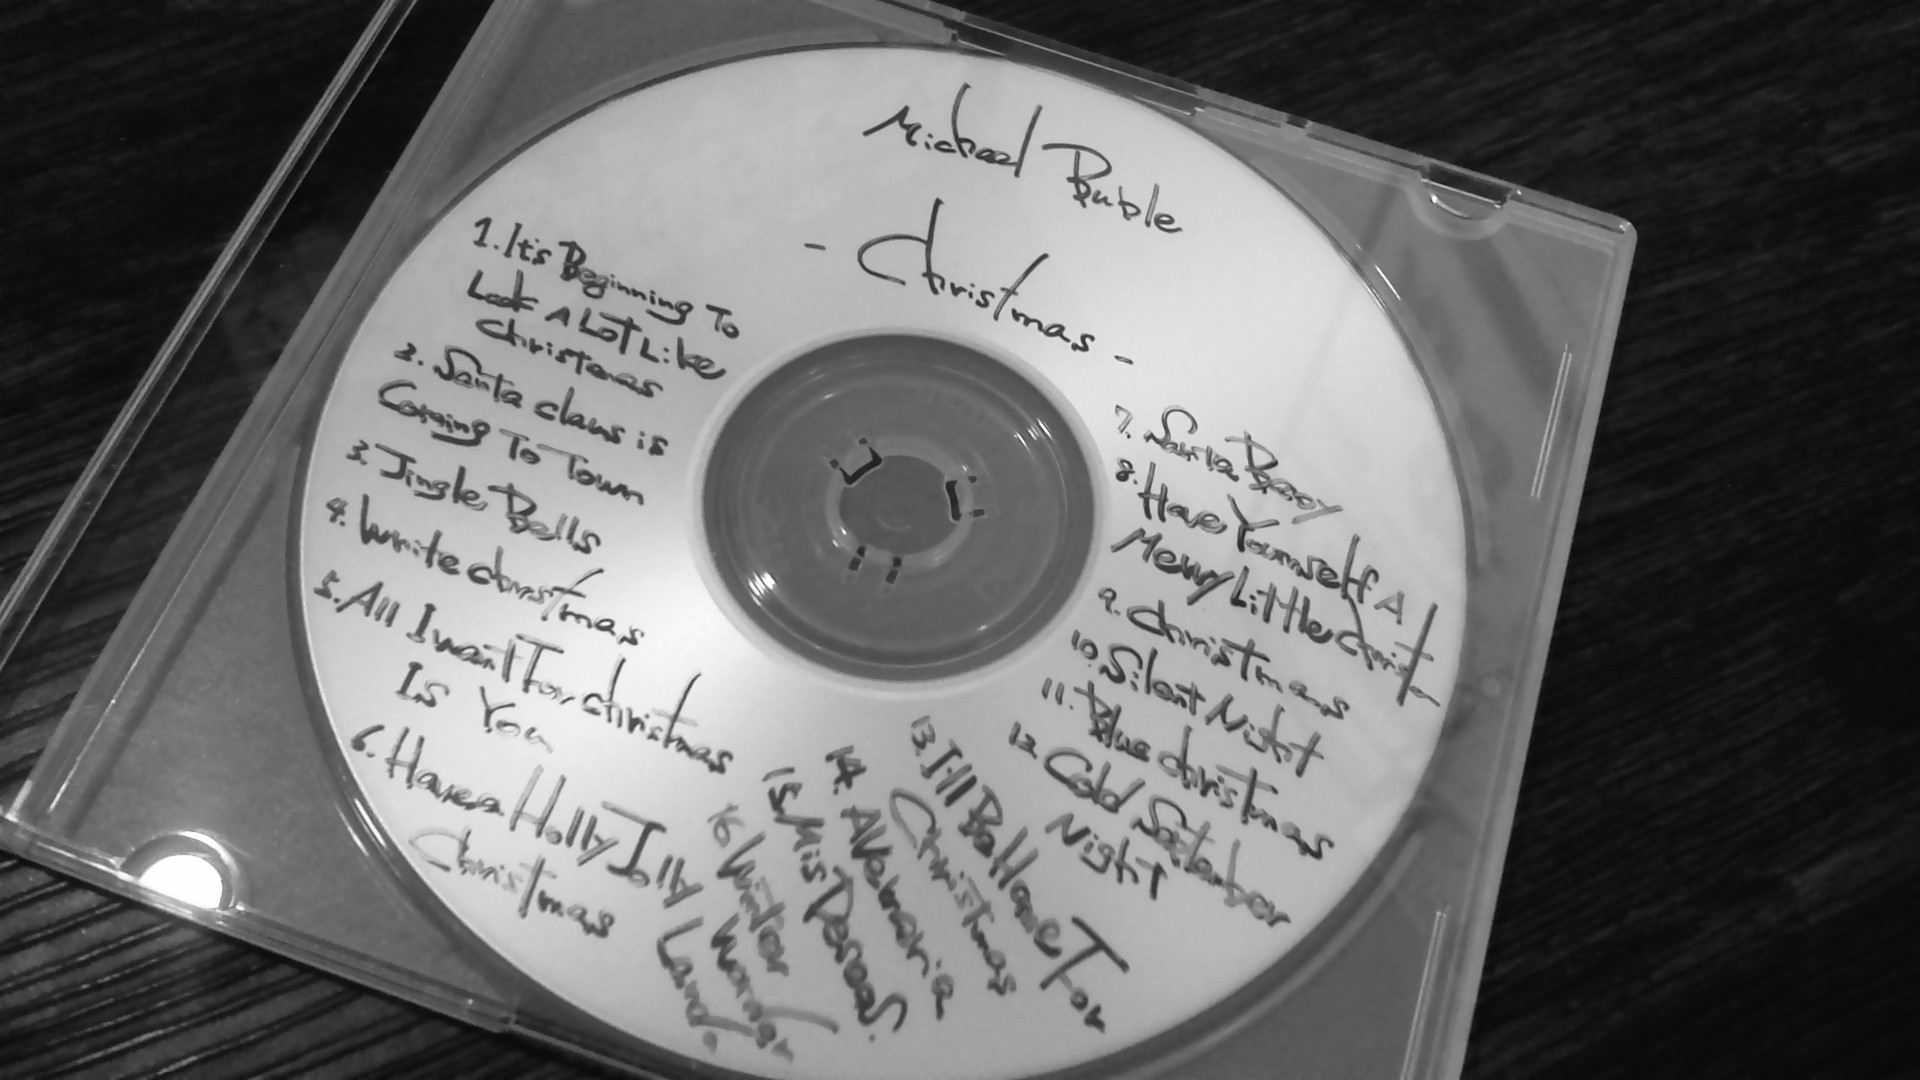 Michael Buble
- Christmas -
1. It's Beginning To
Look A Lot Like
Christmas
2. Santa claus is
Coming To Town
3. Jingle Bells
4. White christmas
5. All I want For christmas
Is You
6. Have a Holly Jolly
Christmas
7. Santa Baby
8. Have Yourself A
Merry Little Christm
9. Christmas
10. Silent Night
11. Blue christmas
12. Cold
Night
13. I'll Be Home For
Christmas
14. Ave maria
15. Mis Deseos
16. Winter
Wonder
Land.